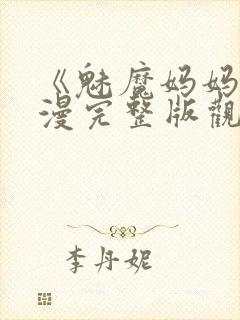 《魅魔妈妈
漫完整版觀
李丹妮